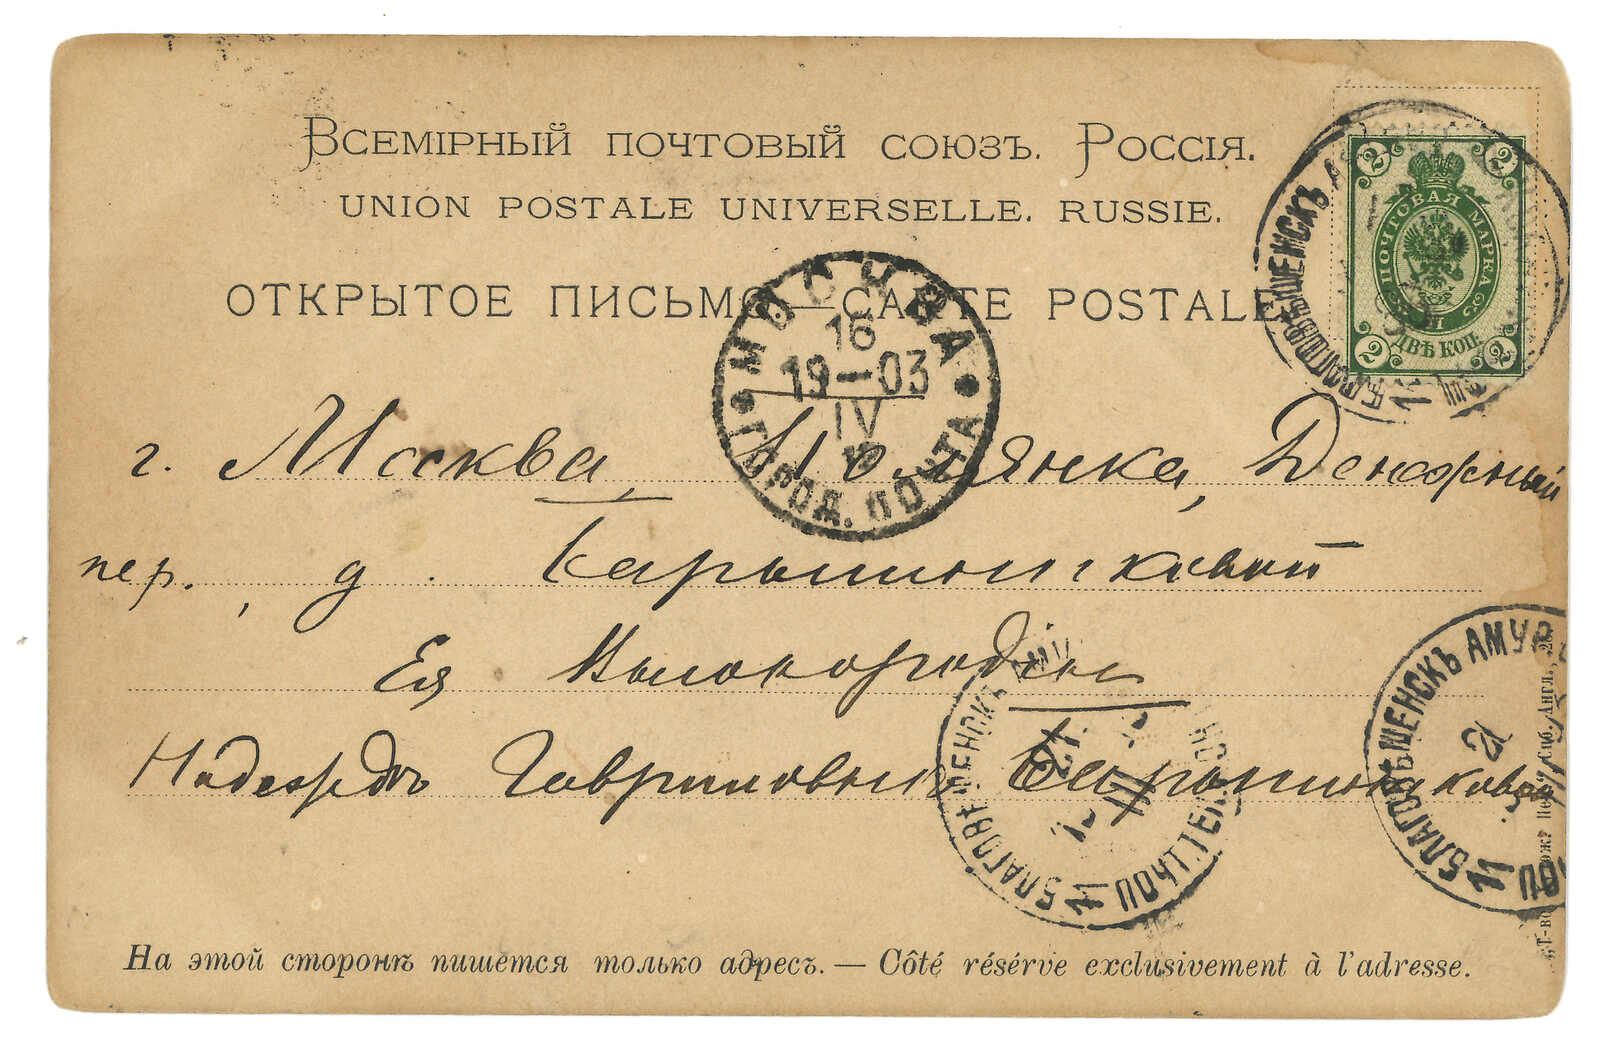 Всемірный почтовый союзъ. Россія.
UNION POSTALE UNIVERSELLE. RUSSIE.
ОТКРЫТОЕ ПИСЬМО — CARTE POSTALE
2 2
ПОЧТОВАЯ МАРКА
ДВѢ КОП.
2 2
БЛАГОВѢЩЕНСКЪ
МОСКВА
16
19—03
IV
ГОРОД. ПОЧТА
г. Москва, Полянка, Денежный
пер., д. Карышниковой
Ея Высокородію
Надеждѣ Гавриловнѣ Карышниковой
БЛАГОВѢЩЕНСКЪ АМУР
БЛАГОВѢЩЕНСКЪ
ПОЧТ. ТЕЛ.
На этой сторонѣ пишется только адресъ. — Côté résérve exclusivement à l'adresse.